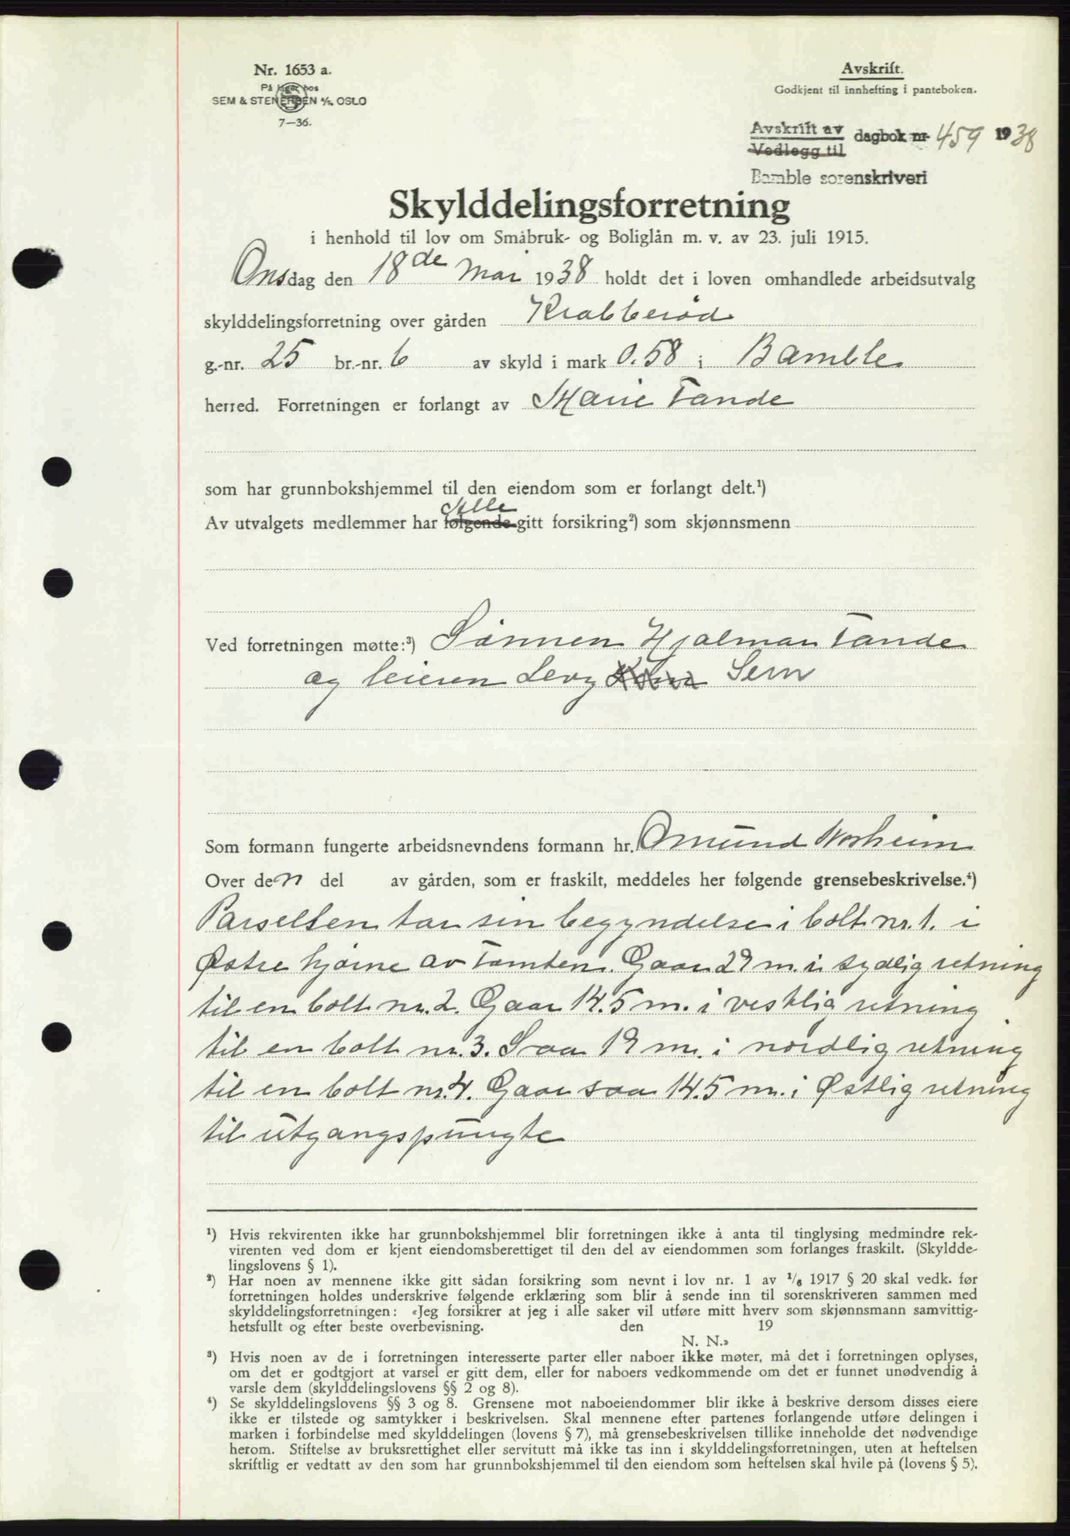 Nr. 1653 a.
På lager hos
SEM & STENERSEN A/S, OSLO
7-36.
Avskrift.
Godkjent til innhefting i panteboken.
Avskrift av
Vedlegg til
dagbok nr 459 1938
Bamble sorenskriveri
Skylddelingsforretning
i henhold til lov om Småbruk- og Boliglån m. v. av 23. juli 1915.
Onsdag den 18de Mai 1938 holdt det i loven omhandlede arbeidsutvalg
skylddelingsforretning over gården Krabberød
g.-nr. 25 br.-nr. 6 av skyld i mark 0.58 i Bamble
herred. Forretningen er forlangt av Marie Tande
som har grunnbokshjemmel til den eiendom som er forlangt delt.¹)
Alle
Av utvalgets medlemmer har følgende gitt forsikring²) som skjønnsmenn
Ved forretningen møtte:³) Sønnen Hjalmar Tande
og leieren Levy Sem
Som formann fungerte arbeidsnevndens formann hr. Omund
Over den del av gården, som er fraskilt, meddeles her følgende grensebeskrivelse.⁴)
Parsellen tar sin begyndelse i bolt nr. 1. i
Østre hjørne av Tomten. Gaar 29 m. i sydlig retning
til en bolt nr. 2. Gaar 14.5 m. i vestlig retning
til en bolt nr. 3. Saa 19 m. i nordlig retning
til en bolt nr. 4. Gaar saa 14.5 m. i Østlig retning
til utgangspungte
¹) Hvis rekvirenten ikke har grunnbokshjemmel blir forretningen ikke å anta til tinglysing medmindre rek-
virenten ved dom er kjent eiendomsberettiget til den del av eiendommen som forlanges fraskilt. (Skyldde-
lingslovens § 1).
²) Har noen av mennene ikke gitt sådan forsikring som nevnt i lov nr. 1 av 1/6 1917 § 20 skal vedk. før
forretningen holdes underskrive følgende erklæring som blir å sende inn til sorenskriveren sammen med
skylddelingsforretningen: «Jeg forsikrer at jeg i alle saker vil utføre mitt hverv som skjønnsmann samvittig-
hetsfullt og efter beste overbevisning. den 19
N. N.»
³) Hvis noen av de i forretningen interesserte parter eller naboer ikke møter, må det i forretningen oplyses,
om det er godtgjort at varsel er gitt dem, eller for naboers vedkommende om det er funnet unødvendig å
varsle dem (skylddelingslovens §§ 2 og 8).
⁴) Se skylddelingslovens §§ 3 og 8. Grensene mot naboeiendommer blir ikke å beskrive dersom disses eiere
ikke er tilstede og samtykker i beskrivelsen. Skal mennene efter partenes forlangende utføre delingen i
marken i forbindelse med skylddelingen (lovens § 7), må grensebeskrivelsen tillike inneholde det nødvendige
herom. Stiftelse av bruksrettighet eller servitutt må ikke tas inn i skylddelingsforretningen, uten at heftelsen
skriftlig er vedtatt av den som har grunnbokshjemmel til den eiendom som heftelsen skal hvile på (lovens § 5).